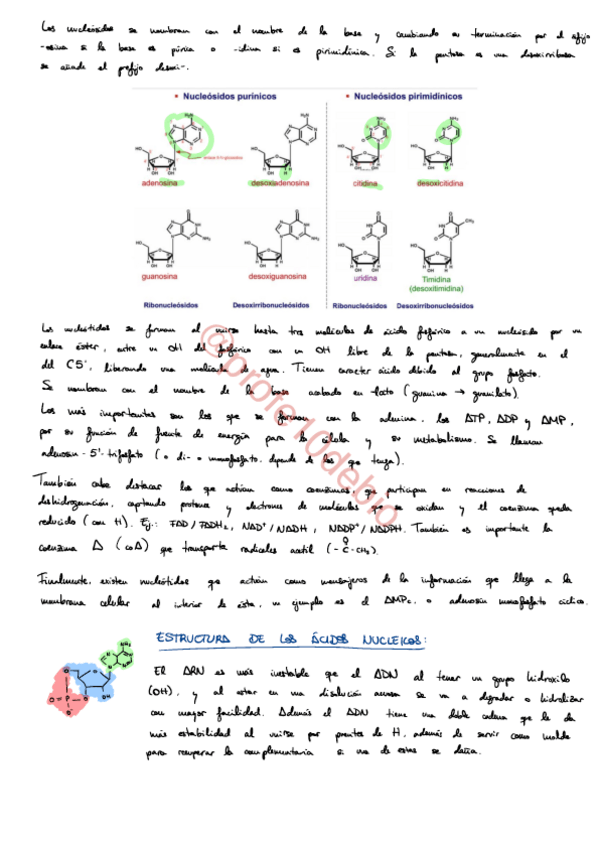 Los nucleósidos se nombran con el nombre de la base y cambiando su terminación por el sufijo
-osina si la base es púrica o -idina si es pirimidínica. Si la pentosa es una desoxirribosa
se añade el prefijo desoxi-.
• Nucleósidos purínicos
• Nucleósidos pirimidínicos
adenosina
desoxiadenosina
citidina
desoxicitidina
guanosina
desoxiguanosina
uridina
Timidina
(desoxitimidina)
Ribonucleósidos
Desoxirribonucleósidos
Ribonucleósidos
Desoxirribonucleósidos
Los nucleótidos se forman al unirse hasta tres moléculas de ácido fosfórico a un nucleósido por un
enlace éster, entre un OH del fosfórico con un OH libre de la pentosa, generalmente en el
del C5', liberando una molécula de agua. Tienen caracter ácido debido al grupo fosfato.
Se nombran con el nombre de la base acabado en -lato (guanina → guanilato).
Los más importantes son los que se forman con la adenina, los ATP, ADP y AMP,
por su función de fuente de energía para la célula y su metabolismo. Se llaman
adenosín-5'-trifosfato (o di- o monofosfato, depende de los que tenga).
También cabe destacar los que actúan como coenzimas, que participan en reacciones de
deshidrogenación, captando protones y electrones de moléculas que se oxidan y el coenzima queda
reducido (con H). Ej.: FAD/FADH₂, NAD⁺/NADH, NADP⁺/NADPH. También es importante la
coenzima A (coA) que transporta radicales acetil (-C-CH₃).
O
Finalmente, existen nucleótidos que actúan como mensajeros de la información que llega a la
membrana celular al interior de ésta, un ejemplo es el AMPc, o adenosín monofosfato cíclico.
@profe10debio
ESTRUCTURA DE LOS ÁCIDOS NUCLEICOS:
El ARN es más inestable que el ADN al tener un grupo hidroxilo
(OH), y al estar en una disolución acuosa se va a degradar o hidrolizar
con mayor facilidad. Además el ADN tiene una doble cadena que le da
más estabilidad al unirse por puentes de H, además de servir como molde
para recuperar la complementaria si una de estas se daña.